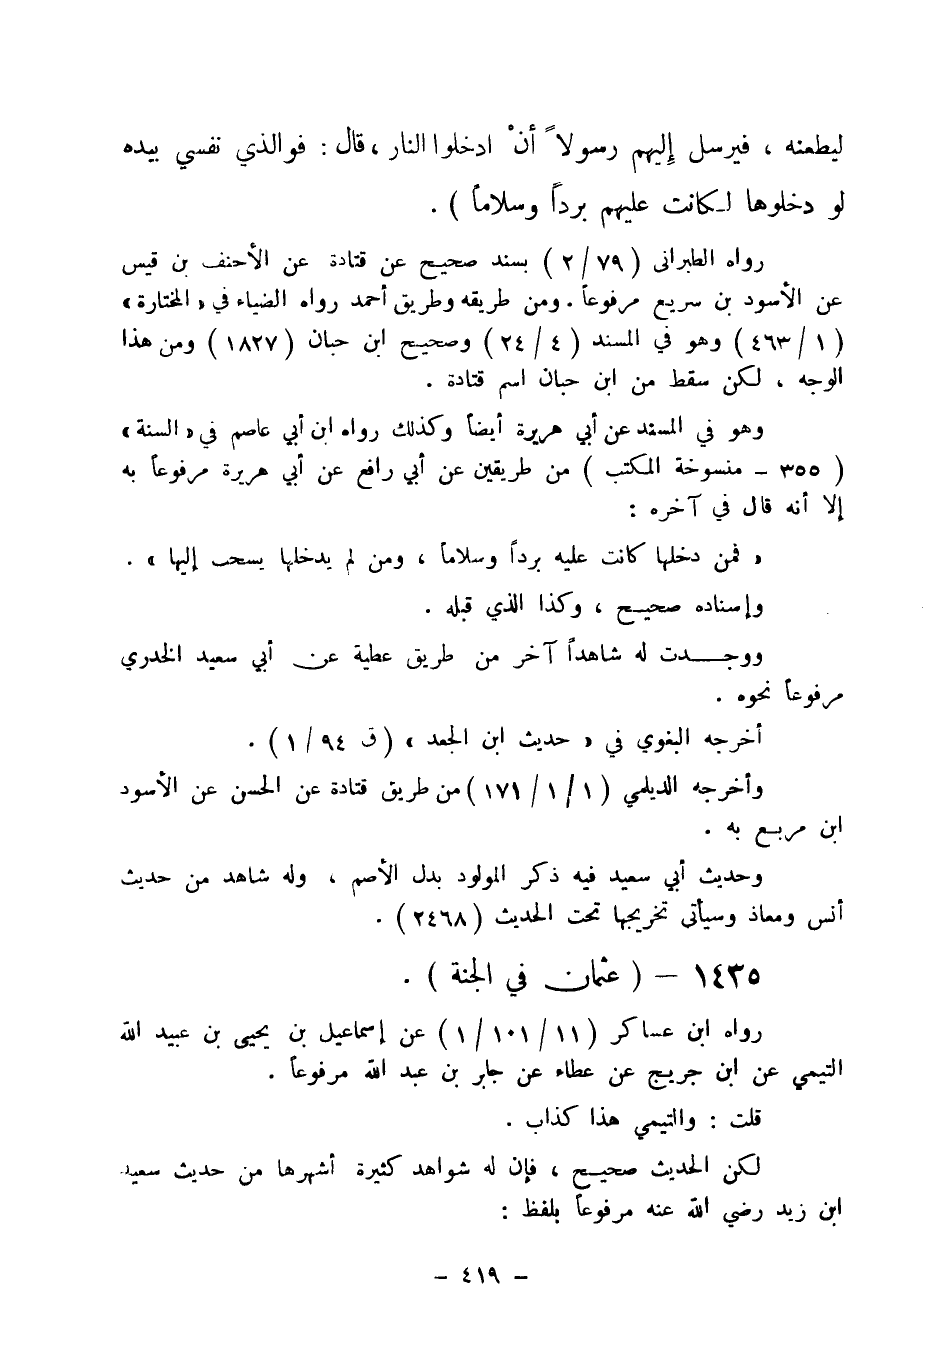 ليطعنه ، فيرسل إليهم رسولاً أنْ ادخلوا النار ، قال : فوالذي نفسي بيده
لو دخلوها لكانت عليهم برداً وسلاماً ) .
رواه الطبراني ( ٧٩ / ٢ ) بسند صحيح عن قتادة عن الأحنف بن قيس
عن الأسود بن سريع مرفوعاً . ومن طريقه وطريق أحمد رواه الضياء في « المختارة »
( ٤٦٣ / ١ ) وهو في المسند ( ٤ / ٢٤ ) وصحيح ابن حبان ( ١٨٢٧ ) ومن هذا
الوجه ، لكن سقط من ابن حبان اسم قتادة .
وهو في المسند عن أبي هريرة أيضاً وكذلك رواه ابن أبي عاصم في « السنة »
( ٣٥٥ – منسوخة المكتب ) من طريقين عن أبي رافع عن أبي هريرة مرفوعاً به
إلا أنه قال في آخره :
« فمن دخلها كانت عليه برداً وسلاماً ، ومن لم يدخلها يسحب إليها » .
وإسناده صحيح ، وكذا الذي قبله .
ووجدت له شاهداً آخر من طريق عطية عن أبي سعيد الخدري
مرفوعاً نحوه .
أخرجه البغوي في « حديث ابن الجعد » ( ق ٩٤ / ١ ) .
وأخرجه الديلمي ( ١ / ١ / ١٧١ ) من طريق قتادة عن الحسن عن الأسود
ابن مربع به .
وحديث أبي سعيد فيه ذكر المولود بدل الأصم ، وله شاهد من حديث
أنس ومعاذ وسيأتي تخريجها تحت الحديث ( ٢٤٦٨ ) .
١٤٣٥ – ( عثمان في الجنة ) .
رواه ابن عساكر ( ١١ / ١٠١ / ١ ) عن إسماعيل بن يحيى بن عبيد الله
التيمي عن ابن جريج عن عطاء عن جابر بن عبد الله مرفوعاً .
قلت : والتيمي هذا كذاب .
لكن الحديث صحيح ، فإن له شواهد كثيرة أشهرها من حديث سعيد
ابن زيد رضي الله عنه مرفوعاً بلفظ :
– ٤١٩ –